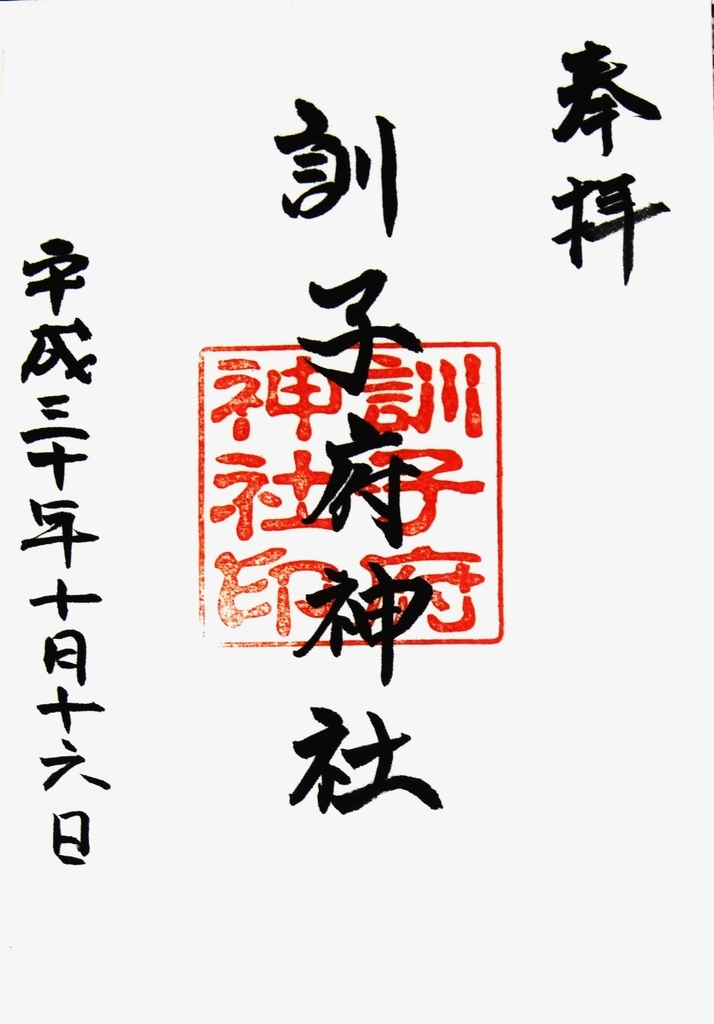 奉拝
訓子府神社
訓子府
神社印
平成三十年十月十六日